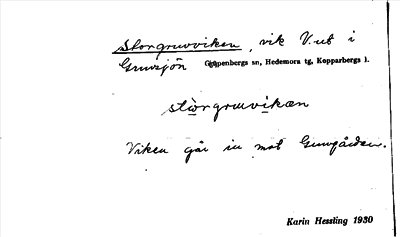 Storgruvviken, vik V. ut i
Gruvsjön Garpenbergs sn, Hedemora tg, Kopparbergs l.
stòrgruvìkæn
Viken går in mot Gruvgården.
Karin Hessling 1930